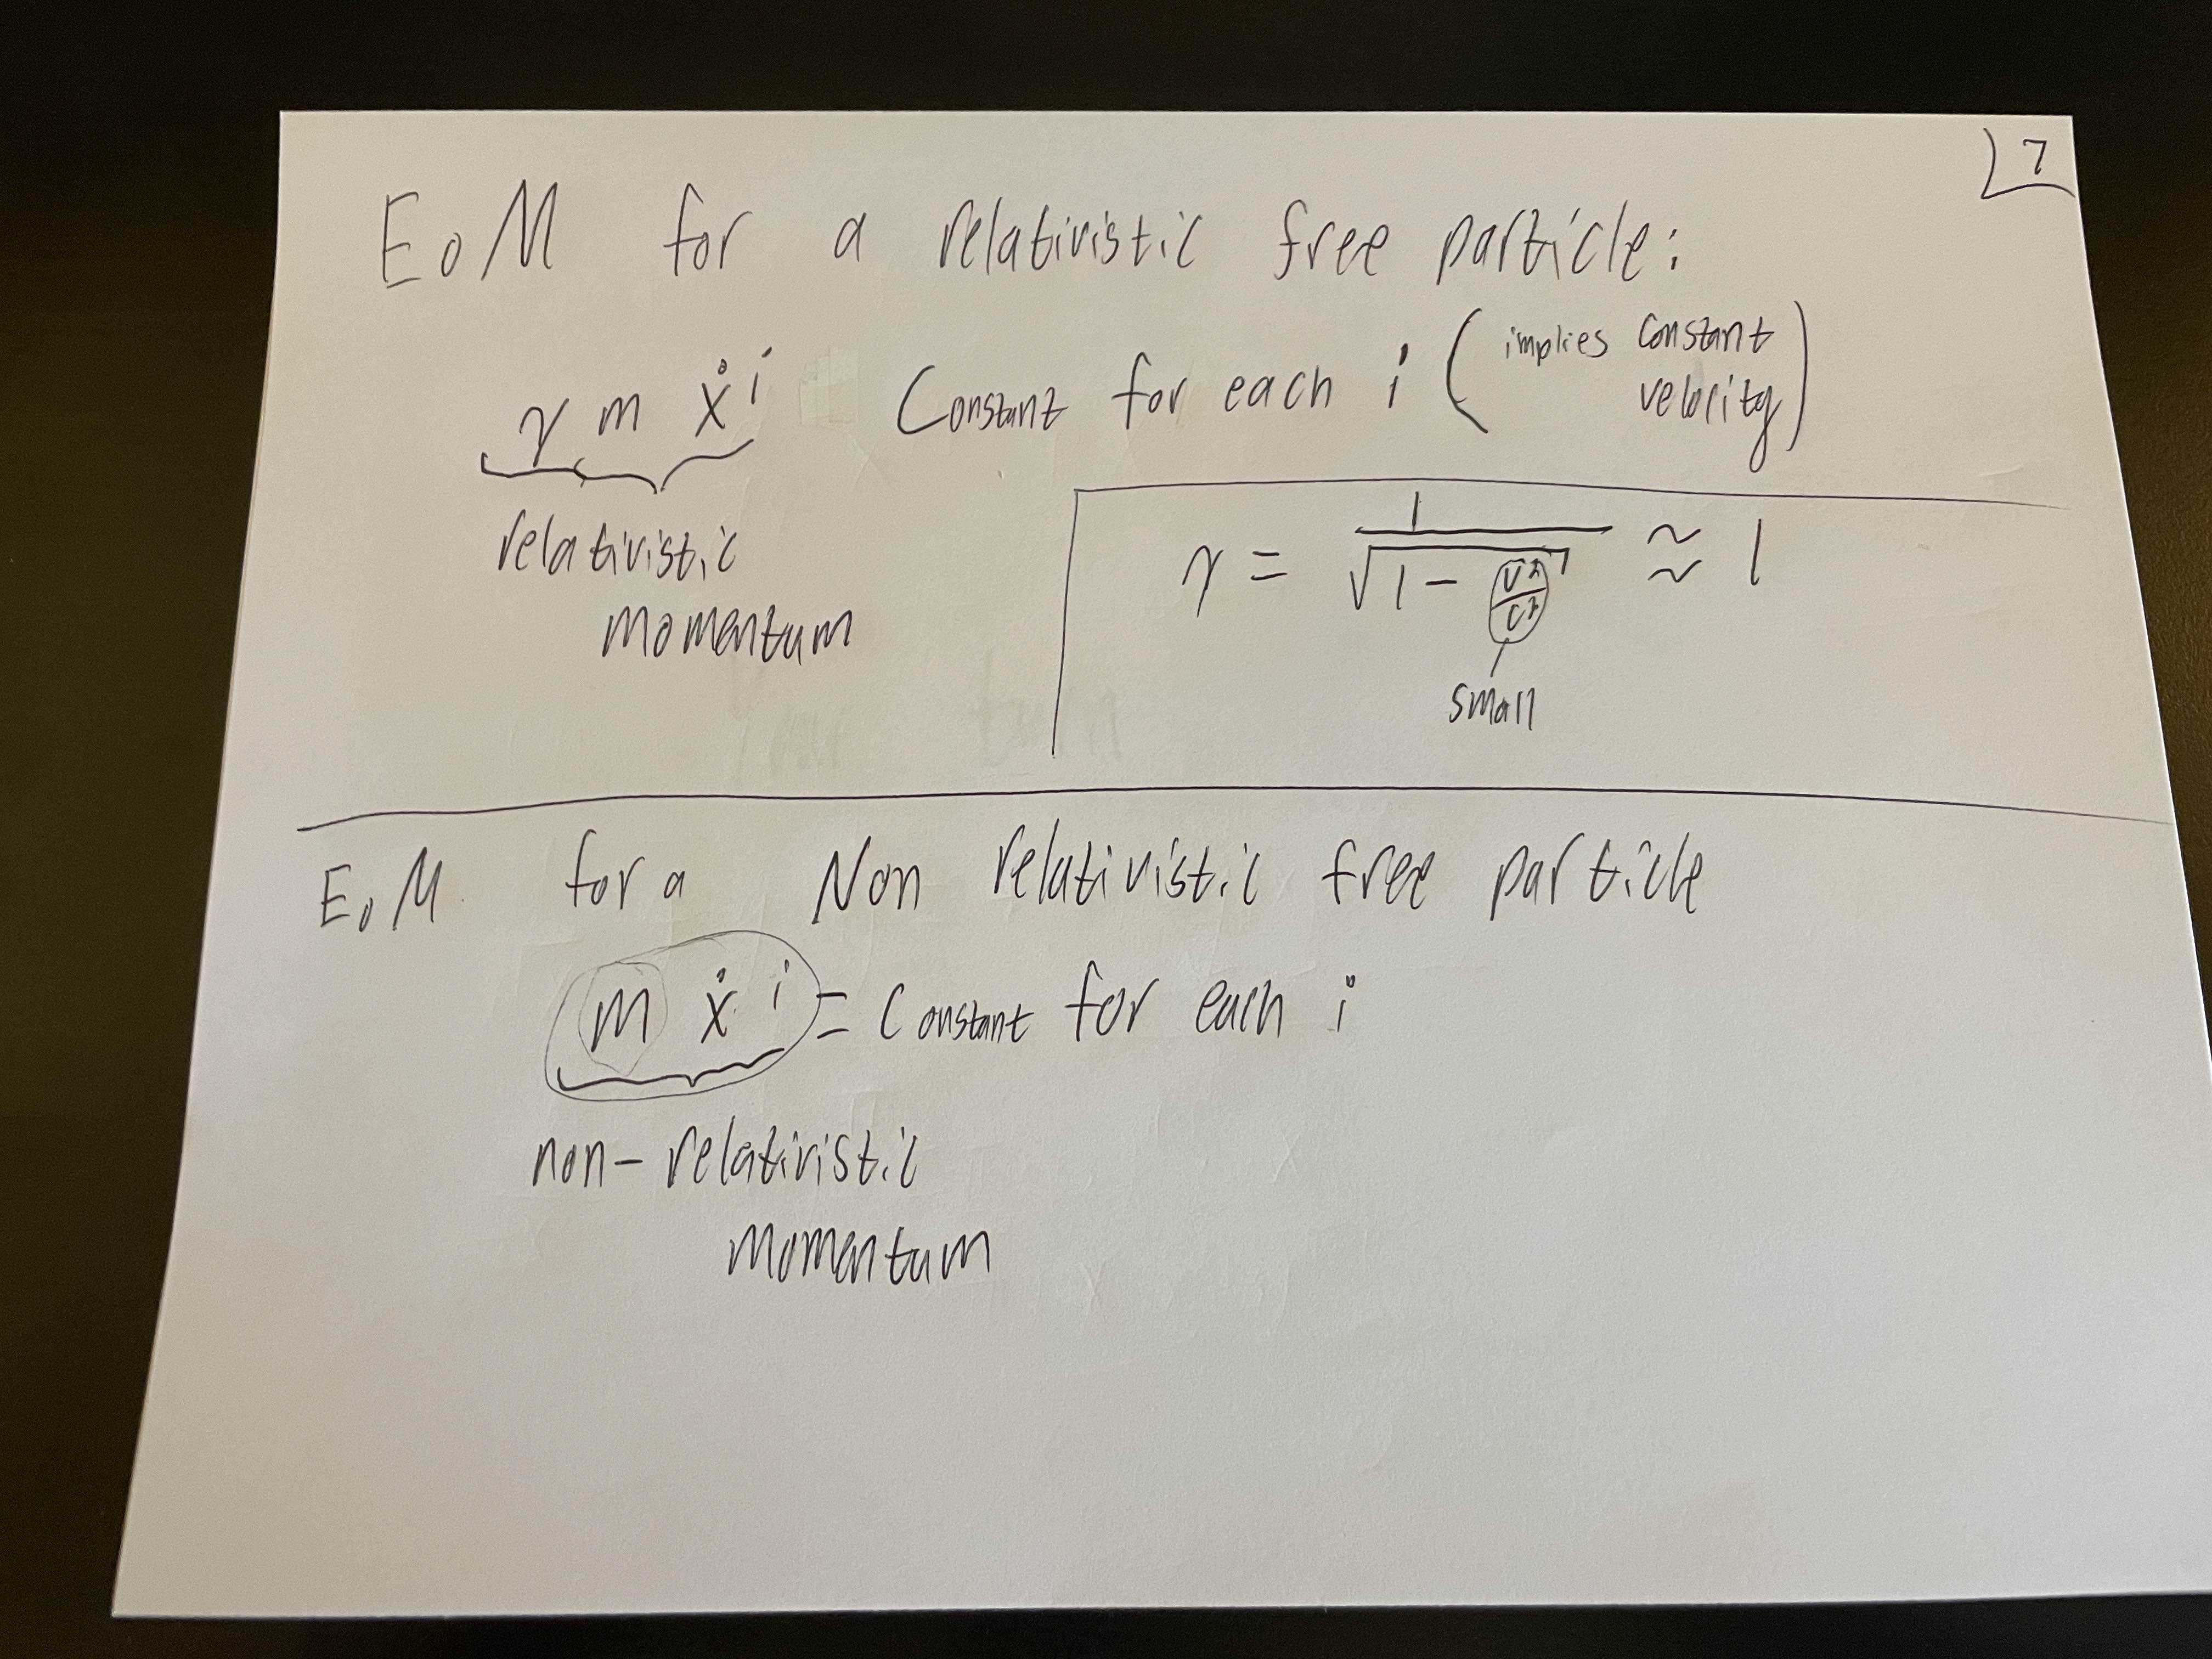 7
EoM for a relativistic free particle:
γ m ẋ^i Constant for each i (implies constant velocity)
relativistic
momentum
γ = 1/√(1 - v²/c²) ≈ 1
small
EoM for a Non relativistic free particle
m ẋ^i = Constant for each i
non-relativistic
momentum